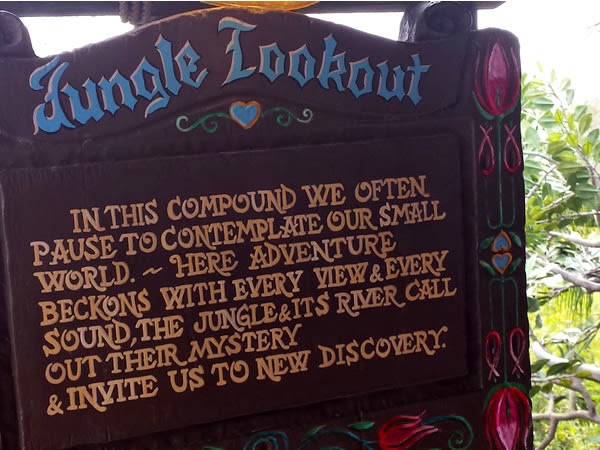 Jungle Lookout
IN THIS COMPOUND WE OFTEN
PAUSE TO CONTEMPLATE OUR SMALL
WORLD. ~ HERE ADVENTURE
BECKONS WITH EVERY VIEW & EVERY
SOUND, THE JUNGLE & ITS RIVER CALL
OUT THEIR MYSTERY
& INVITE US TO NEW DISCOVERY.